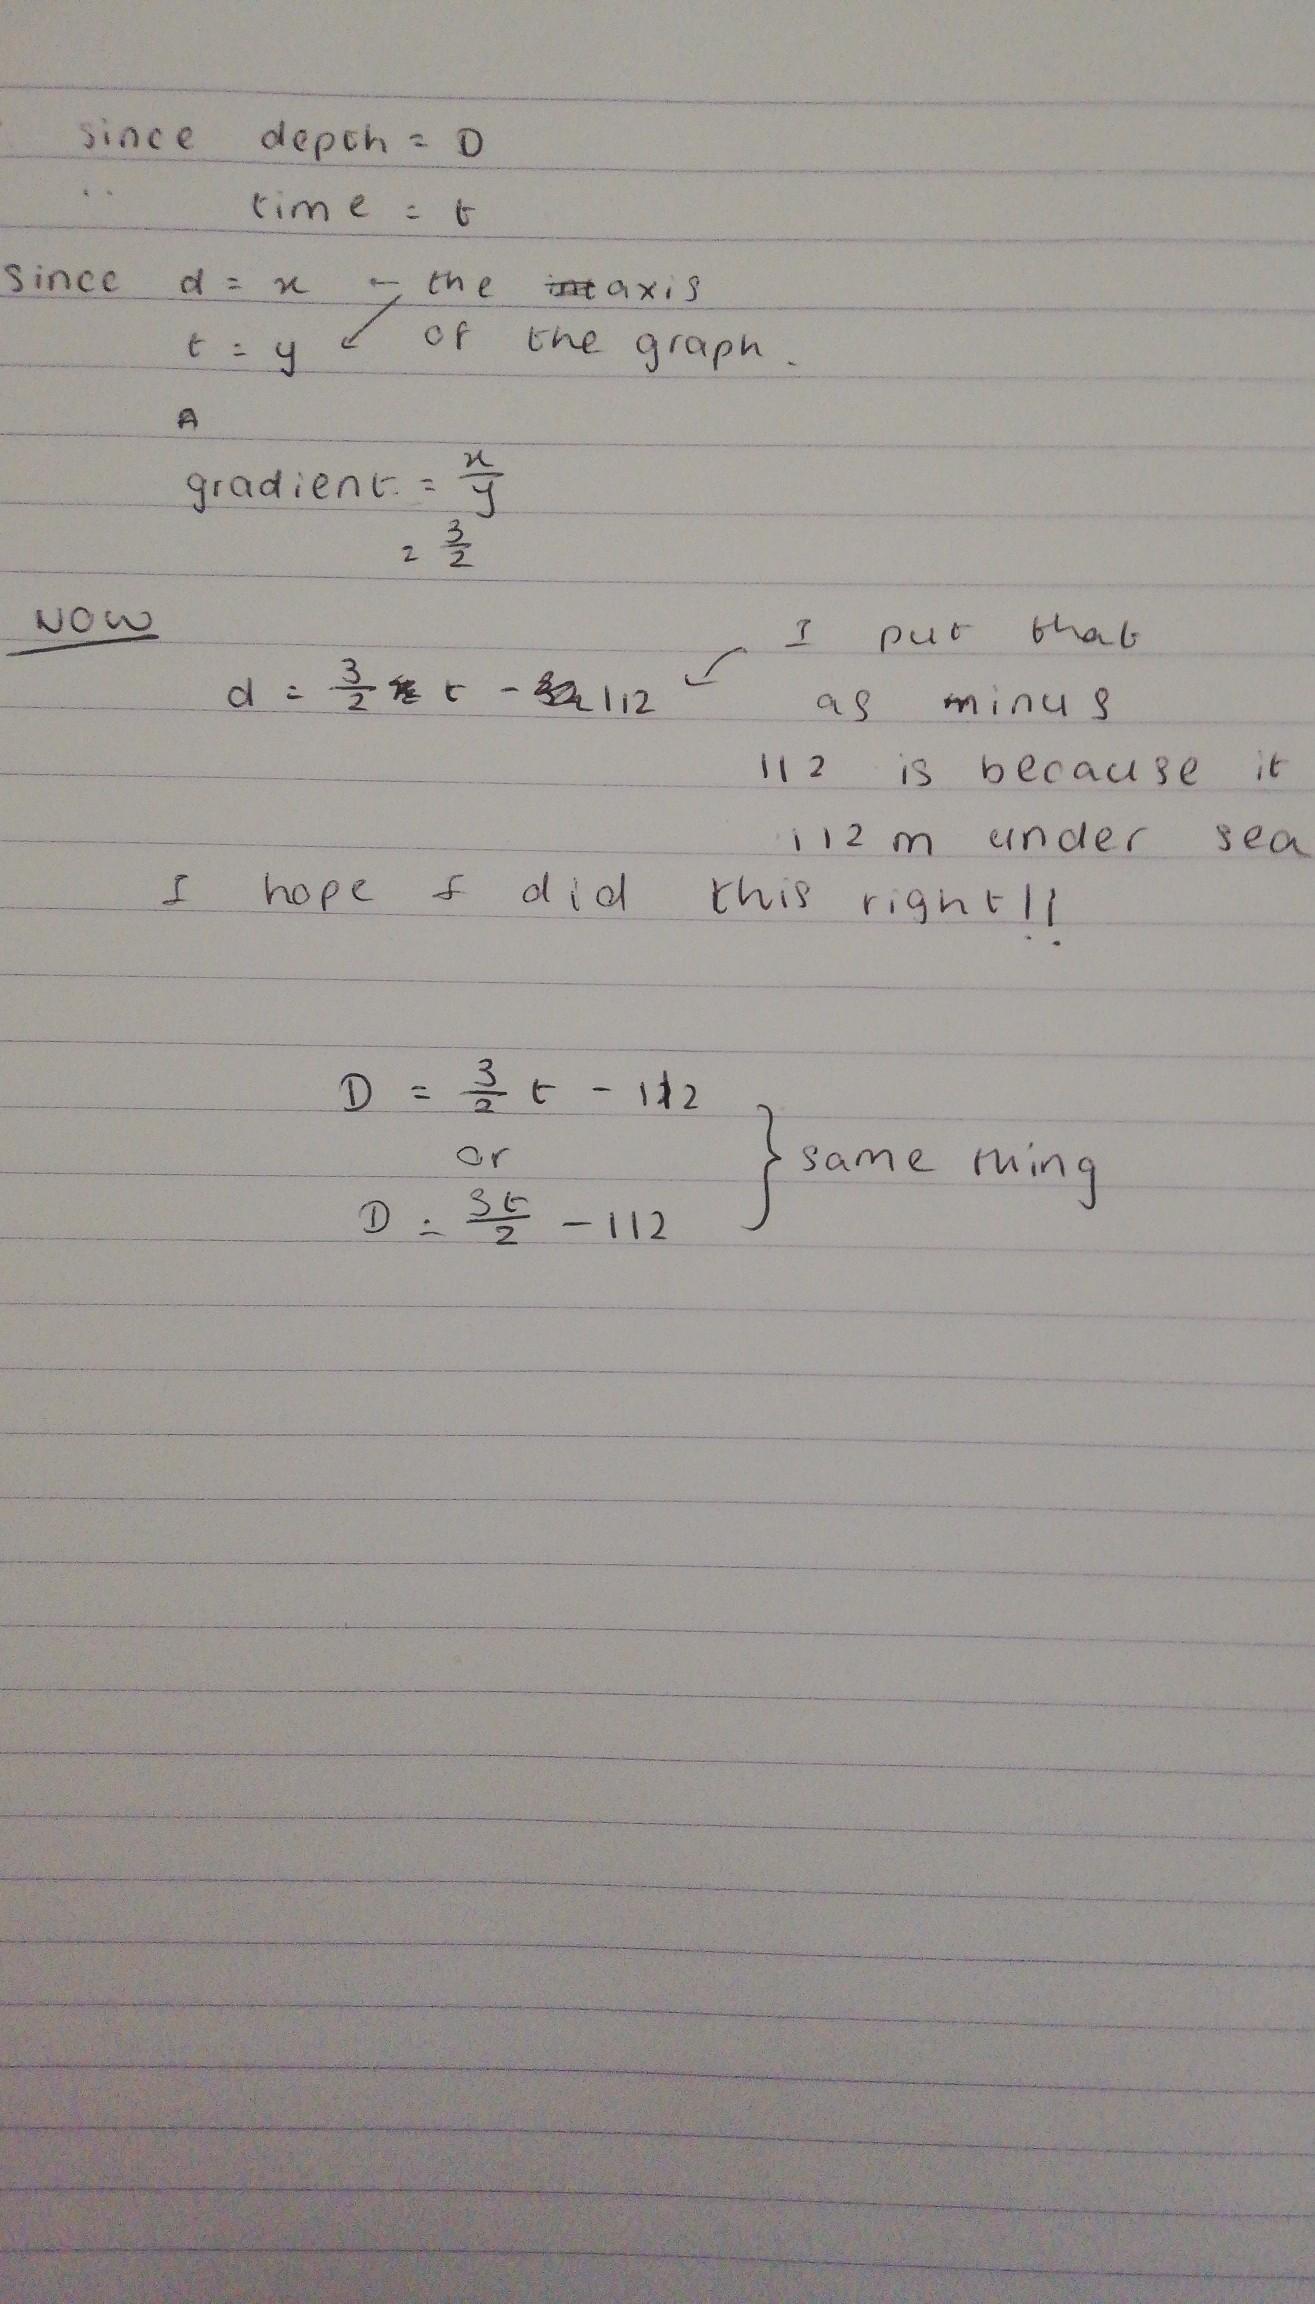 since depth = D
" time = t
since d = x ← the axis
t = y ↙ of the graph.
A
gradient = x/y
= 3/2
NOW
I put that
d = 3/2 t - 112
as minus
112 is because it
112m under sea
I hope I did this right!!
D = 3/2 t - 112
or
} same thing
D = 3t/2 - 112